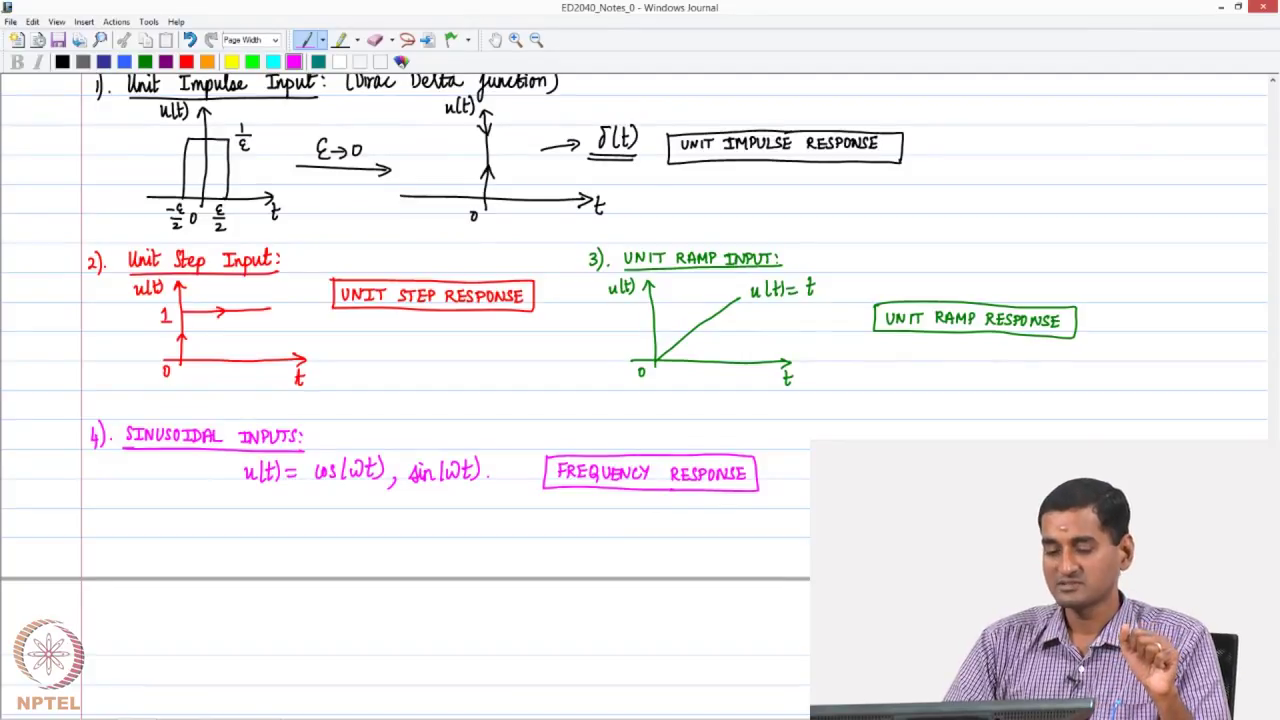 ED2040_Notes_0 - Windows Journal
File Edit View Insert Actions Tools Help
Page Width
B I
1). Unit Impulse Input: (Dirac Delta function)
u(t) 1/ε
-ε/2 0 ε/2 t
ε→0
u(t)
0 t
δ(t)
UNIT IMPULSE RESPONSE
2). Unit Step Input:
u(t)
1
0 t
UNIT STEP RESPONSE
3). UNIT RAMP INPUT:
u(t) u(t)= t
0 t
UNIT RAMP RESPONSE
4). SINUSOIDAL INPUTS:
u(t)= cos(ωt), sin(ωt).
FREQUENCY RESPONSE
NPTEL